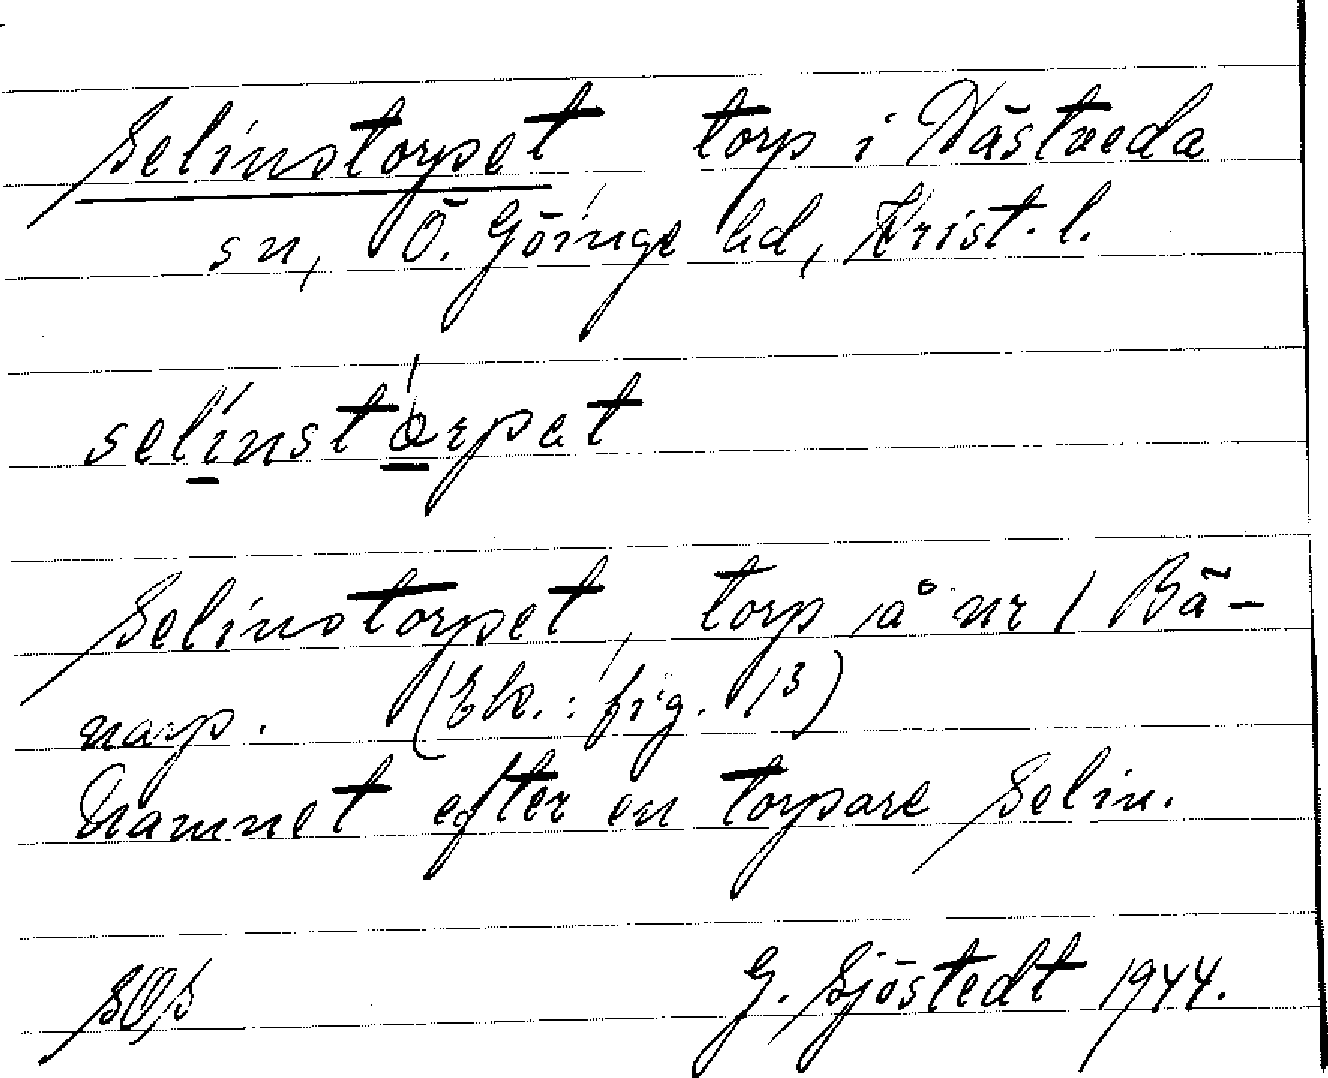 Selinstorpet torp i Västveda
sn, Ö. Göinge hd, Krist. l.
selinstorpet
Selinstorpet, torp å nr 1 Bä-
narp. (Ek.: fig. 13)
Namnet efter en torpare Selin.
SOS G. Sjöstedt 1944.